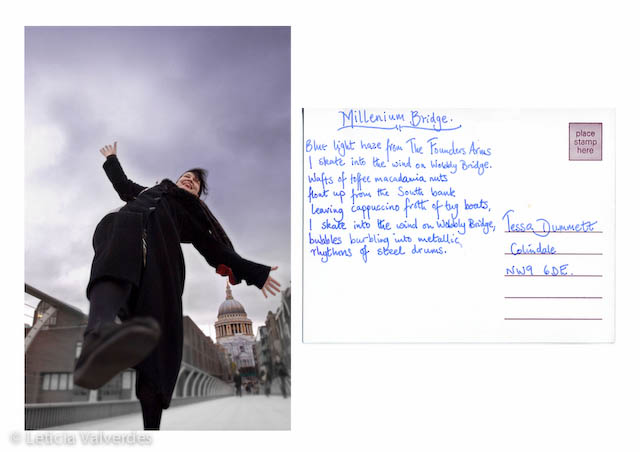 Millenium Bridge.
Blue light haze from The Founders Arms
I skate into the wind on Wobbly Bridge.
Wafts of toffee macadamia nuts
float up from the South bank
leaving cappuccino froth of tug boats,
I skate into the wind on Wobbly Bridge,
bubbles burbling into metallic
rhythms of steel drums.
place
stamp
here
Tessa Dummett
Colindale
NW9 6DE.
© Leticia Valverdes